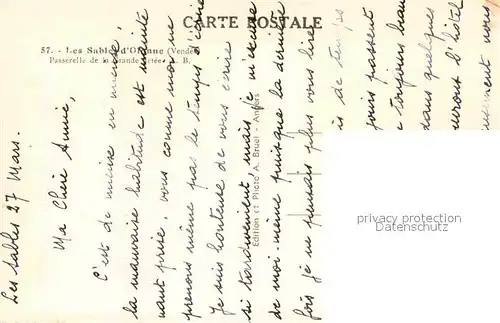 CARTE POSTALE
57. - Les Sables d'Olonne (Vendée)
Passerelle de la Grande Jetée A. B.
Edition et Photo A. Bruel - Angers
Les Sables 27 Mars.
Ma Chère Annie,
C'est de mieux en mieux!
la mauvaise habitude est mainte
nant prise, vous comme moi ne
prenons même pas le temps d'écrire
Je suis honteuse de vous écrire
si tardivement, mais je m'excuse
de moi-même puisque la dernière
fois je ne pouvais plus vous lire
is de temps
jours passent
toujours beau
dans quelques
l'hôtel
nous
privacy protection
Datenschutz